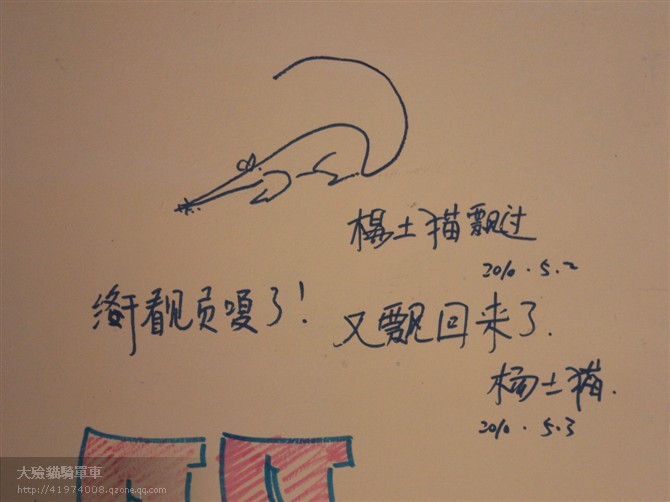 楊土猫飘过
2010.5.2
又飘回来了.
杨土猫.
2010.5.3
大殮貓騎單車
http://41974008.qzone.qq.com